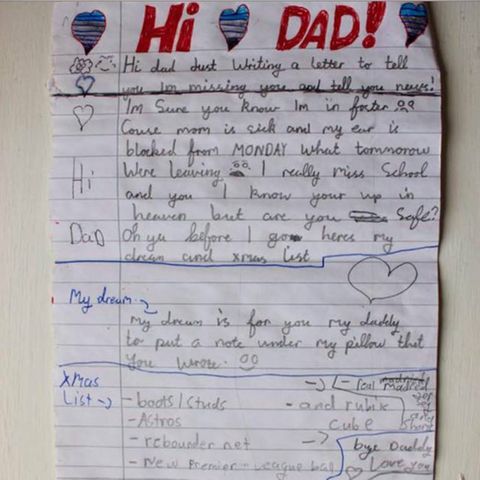 Hi DAD!
Hi dad Just Writing a letter to tell
you Im missing you and tell you news!
Im Sure you know Im in foster
Couse mom is sick and my ear is
blocked from MONDAY What tommorow
Hi
Were leaving I really miss School
and you I know your up in
heaven but are you Safe?
DaD
Oh ya before I go heres my
dream and xmas List
My dream
My dream is for you my daddy
to put a note under my pillow that
you wrote.
Xmas
List
- boots/studs
- Astros
- rebounder net
- New Premier League ball
- real madrid
- and rubik
cube
Short
bye Daddy
Love you